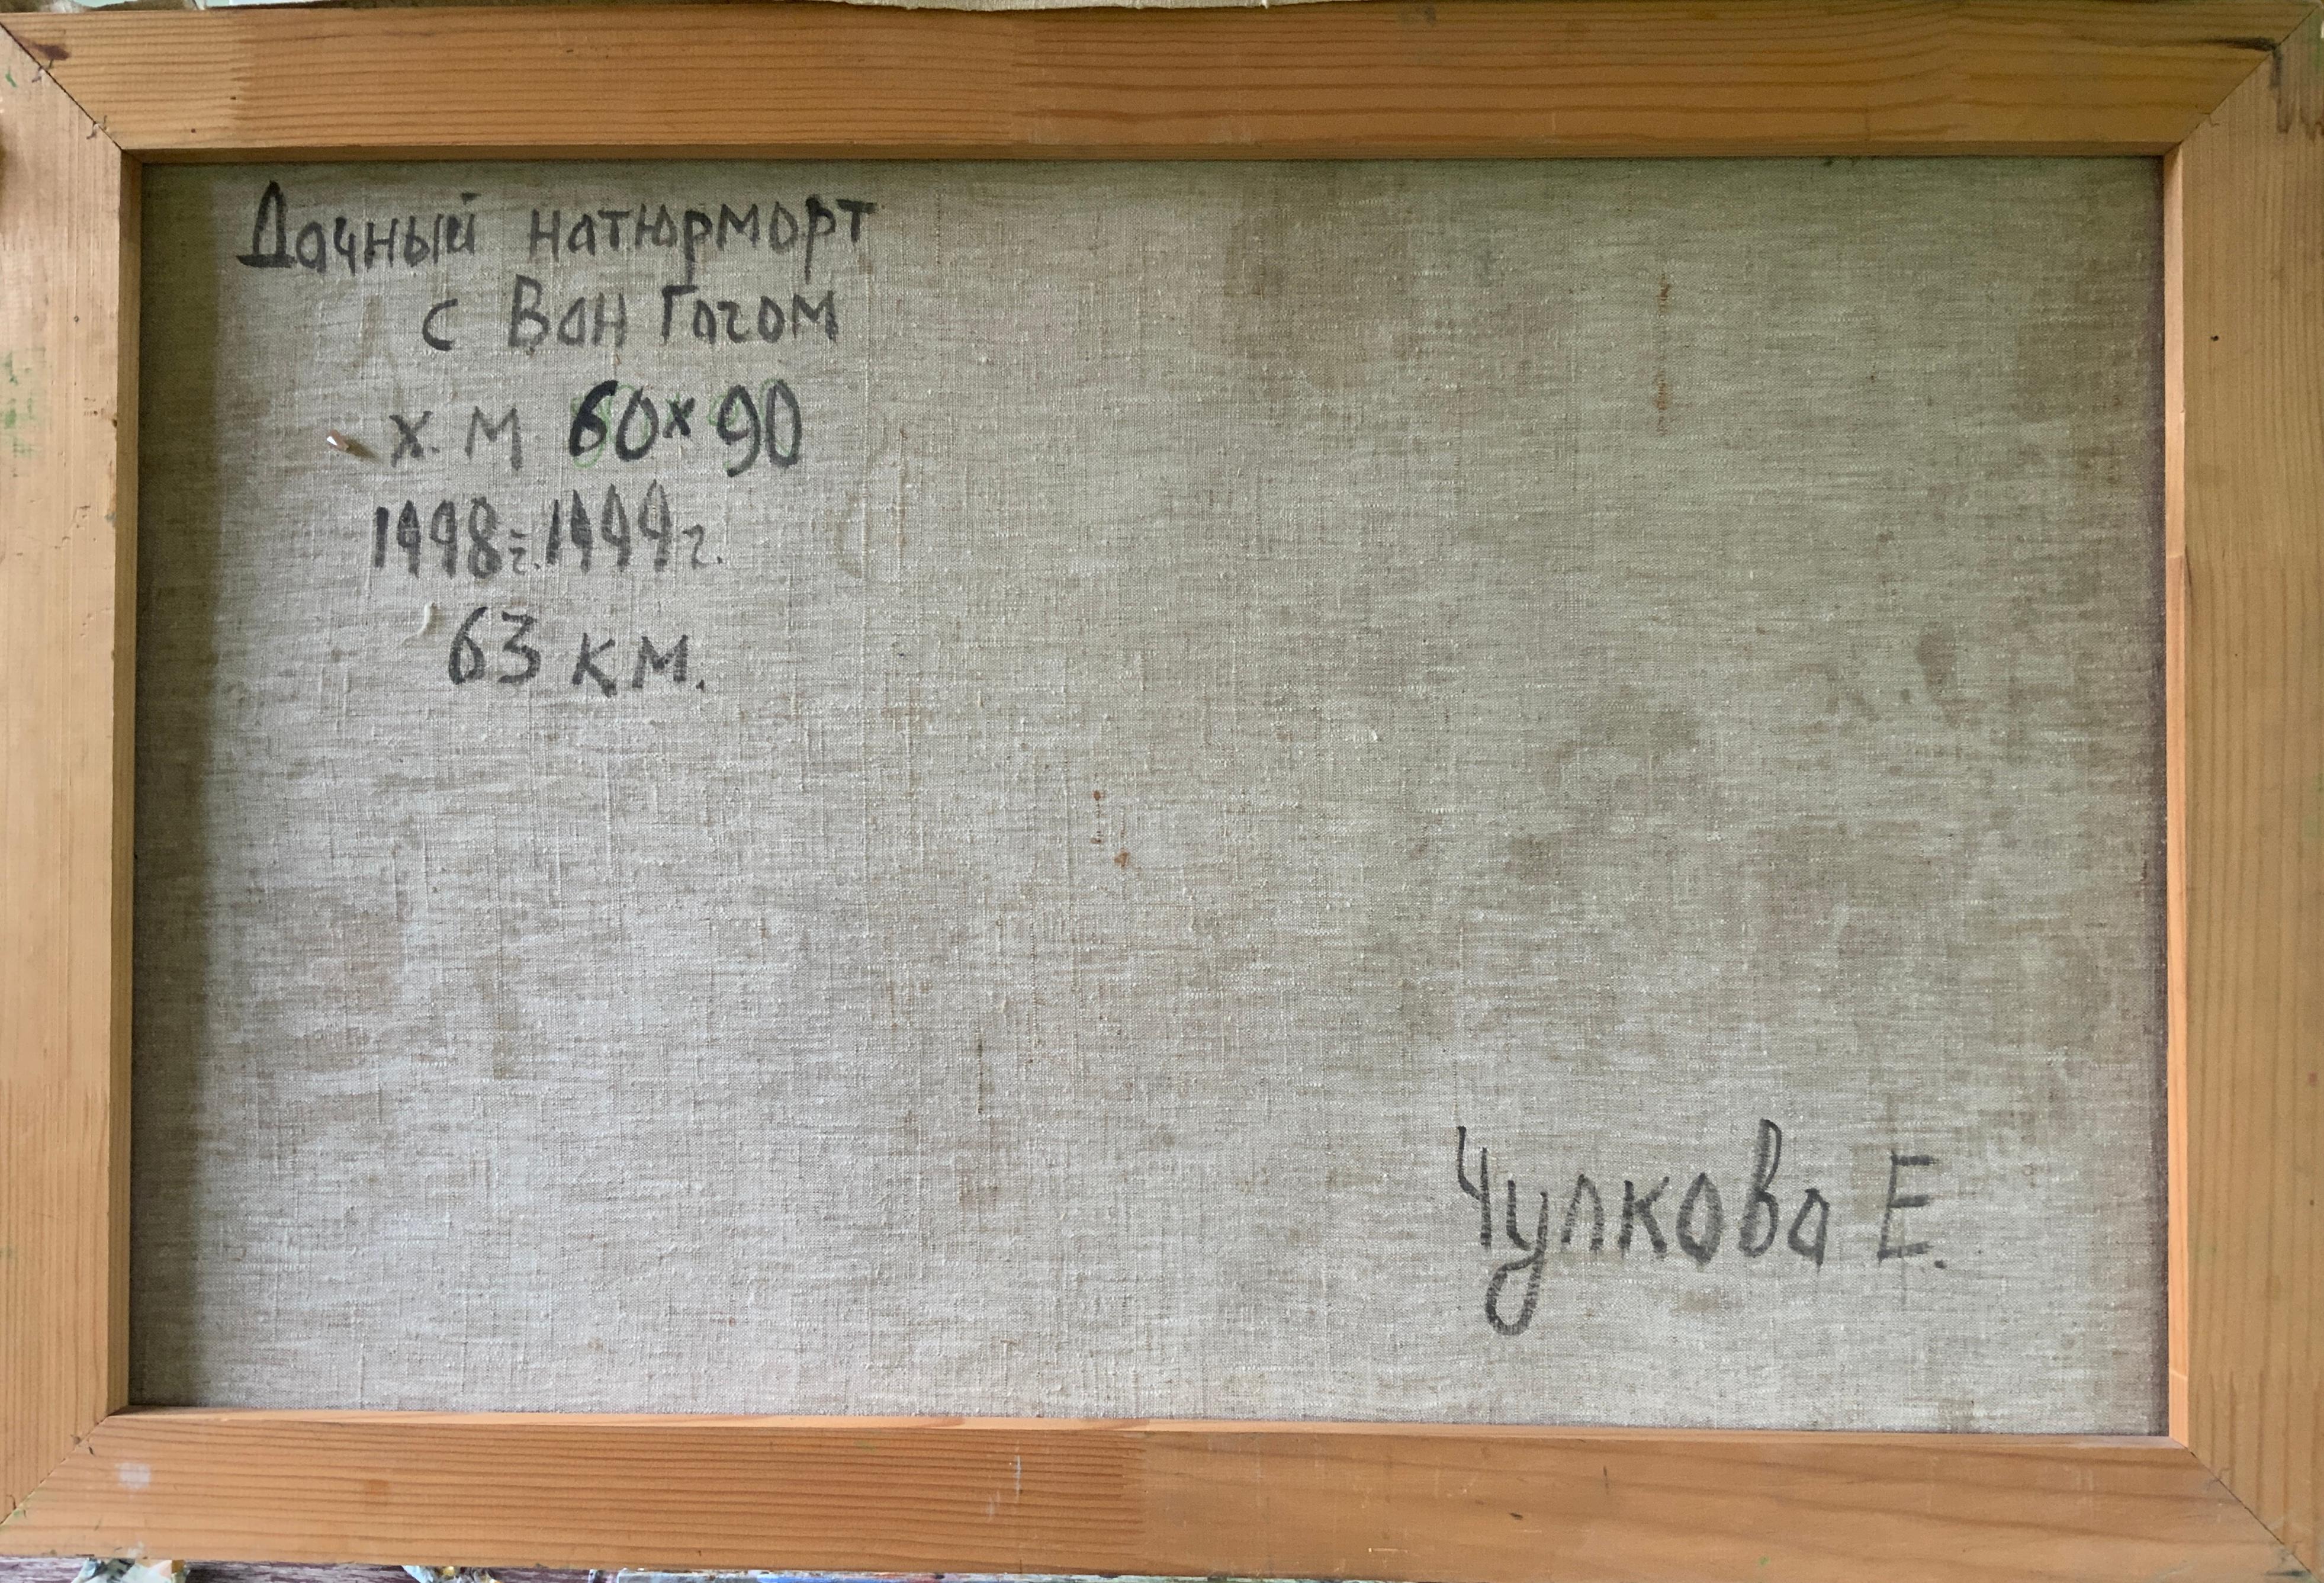 Дачный натюрморт
с Ван Гогом
х.м 60х90
1998г.-1999г.
63 км.
Чулкова Е.